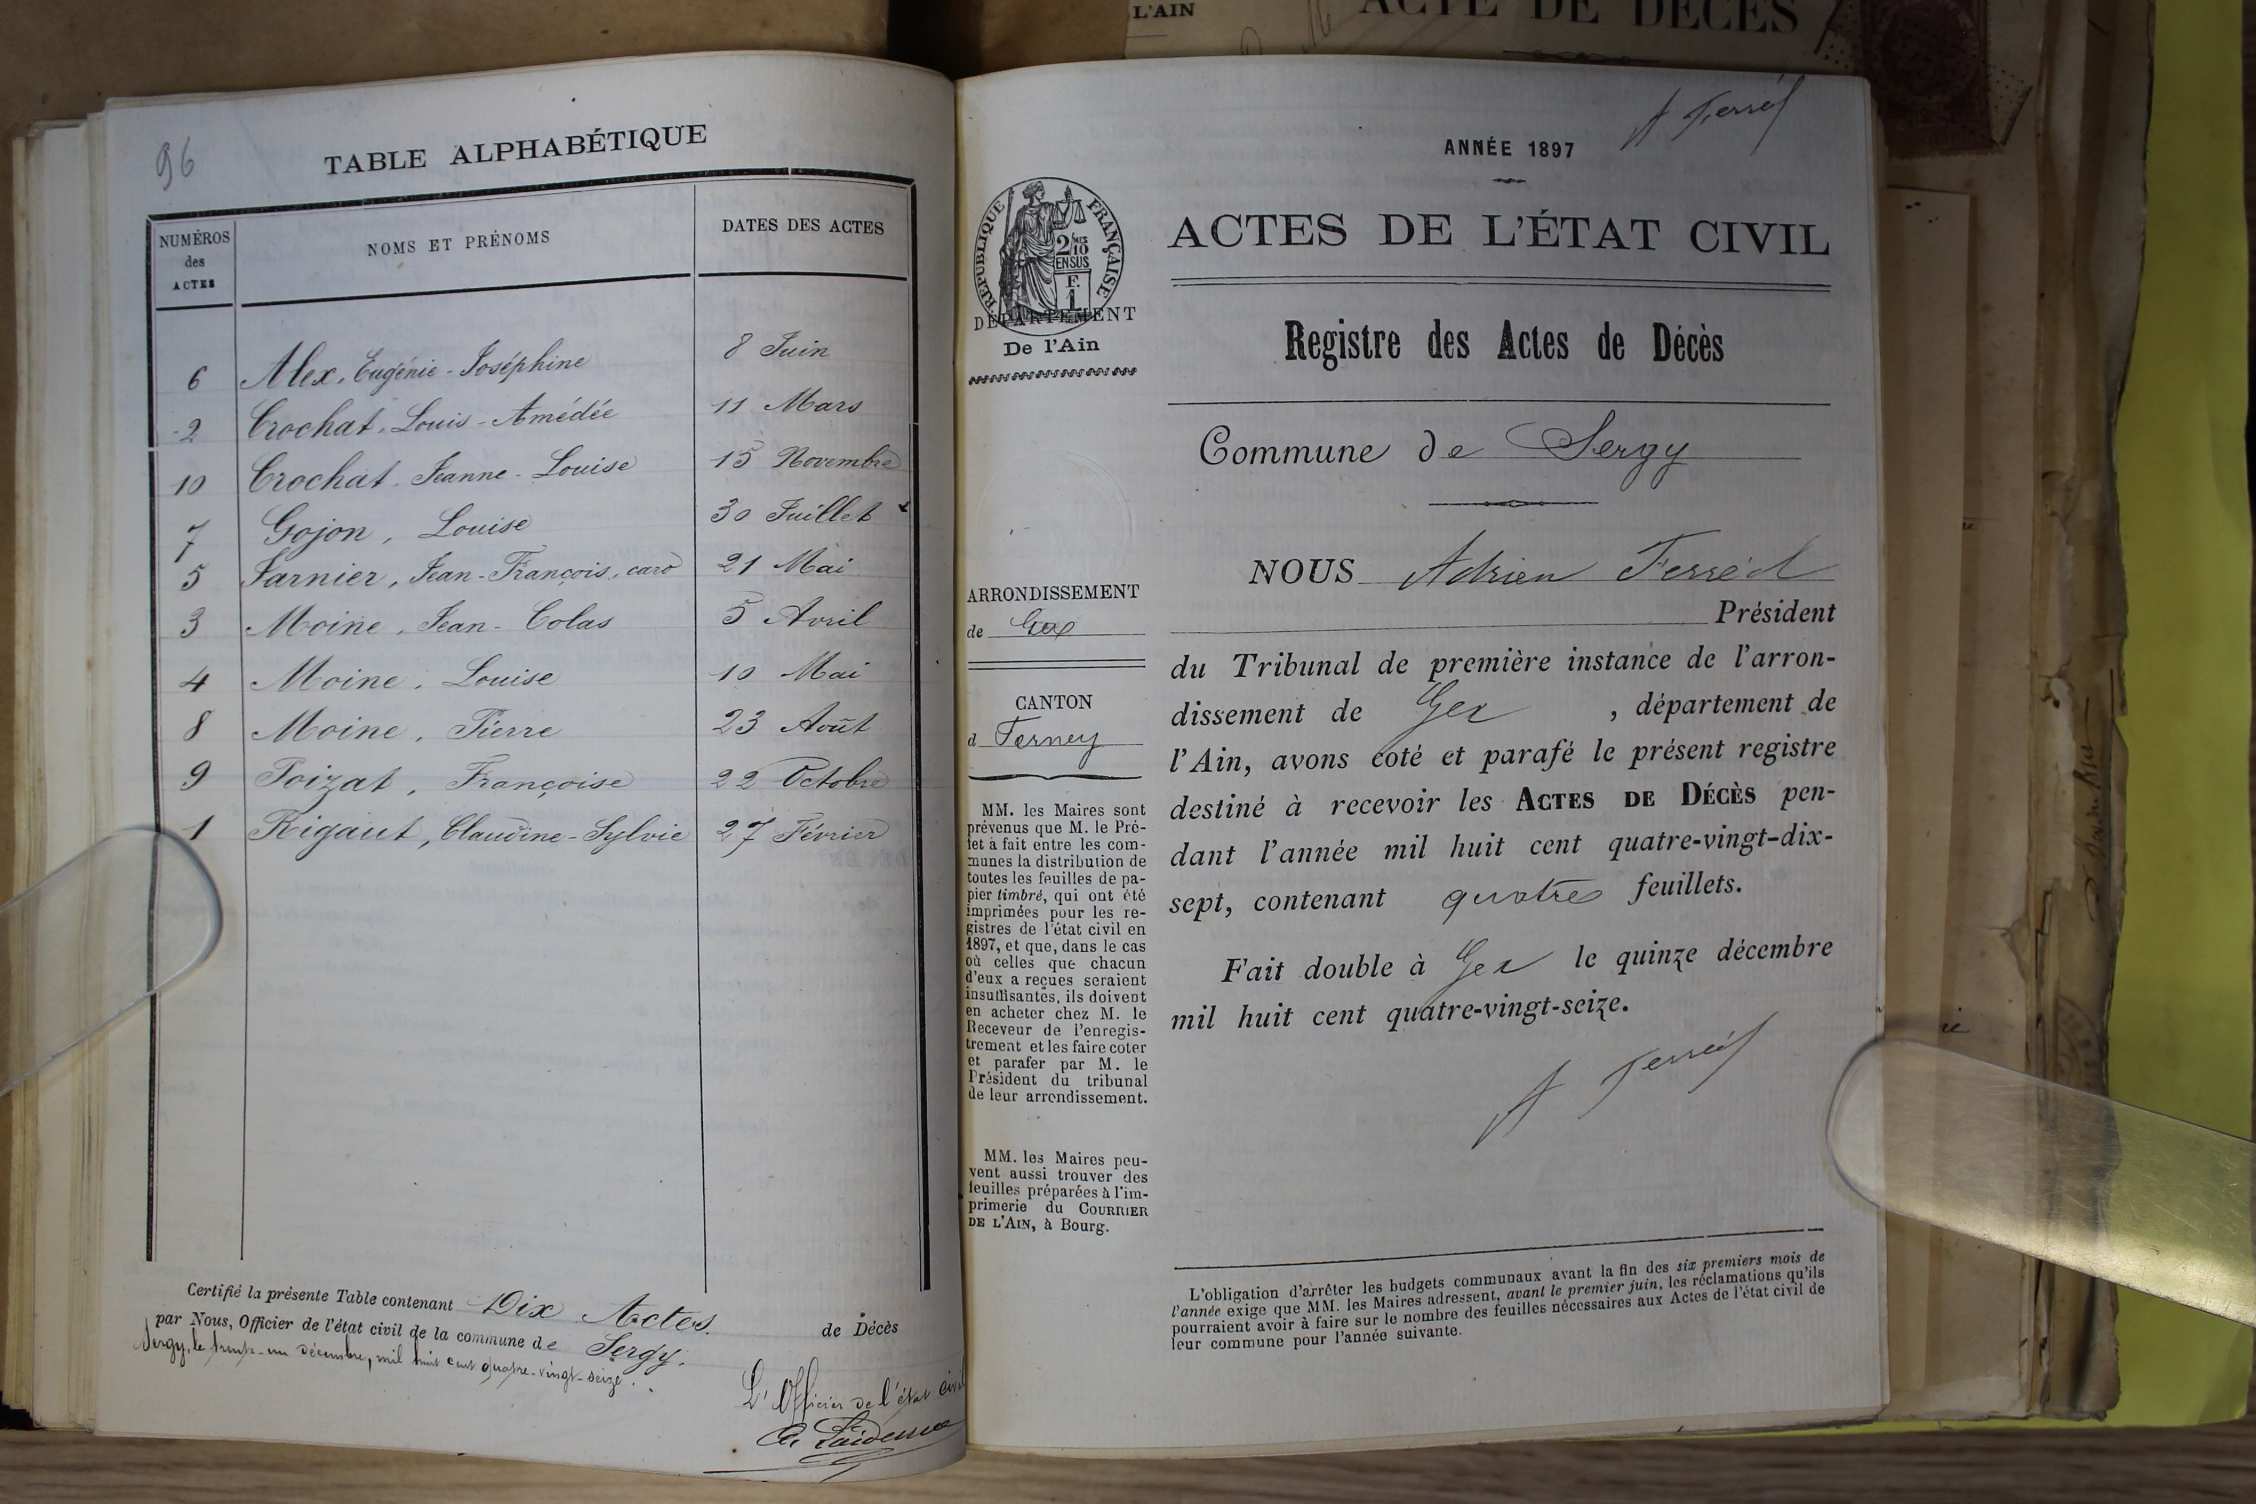 L'AIN
ACTE DE DÉCÈS
96
TABLE ALPHABÉTIQUE
NUMÉROS des ACTES
NOMS ET PRÉNOMS
DATES DES ACTES
6 Alex, Eugénie-Joséphine 8 Juin
2 Crochat, Louis-Amédée 11 Mars
10 Crochat, Jeanne-Louise 15 Novembre
7 Gojon, Louise 30 Juillet
5 Jarnier, Jean-François, 21 Mai
3 Moine, Jean-Colas 5 Avril
4 Moine, Louise 10 Mai
8 Moine, Pierre 23 Août
9 Poizat, Françoise 22 Octobre
1 Rigaut, Claudine-Sylvie 27 Février
Certifié la présente Table contenant Dix Actes. de Décès
par Nous, Officier de l'état civil de la commune de Sergy.
Sergy, le trente-un décembre, mil huit cent quatre-vingt-seize.
L'Officier de l'état civil
A Ferréol
ANNÉE 1897
RÉPUBLIQUE FRANÇAISE
2 10
EN SUS
F.
1
DÉPARTEMENT
De l'Ain
ARRONDISSEMENT
de Gex
CANTON
d Ferney
MM. les Maires sont
prévenus que M. le Pré-
fet a fait entre les com-
munes la distribution de
toutes les feuilles de pa-
pier timbré, qui ont été
imprimées pour les re-
gistres de l'état civil en
1897, et que, dans le cas
où celles que chacun
d'eux a reçues seraient
insuffisantes, ils doivent
en acheter chez M. le
Receveur de l'enregis-
trement et les faire coter
et parafer par M. le
Président du tribunal
de leur arrondissement.
MM. les Maires peu-
vent aussi trouver des
feuilles préparées à l'im-
primerie du COURRIER
DE L'AIN, à Bourg.
ACTES DE L'ÉTAT CIVIL
Registre des Actes de Décès
Commune de Sergy
NOUS Adrien Ferréol
Président
du Tribunal de première instance de l'arron-
dissement de Gex , département de
l'Ain, avons coté et parafé le présent registre
destiné à recevoir les ACTES DE DÉCÈS pen-
dant l'année mil huit cent quatre-vingt-dix-
sept, contenant quatre feuillets.
Fait double à Gex le quinze décembre
mil huit cent quatre-vingt-seize.
A Ferréol
L'obligation d'arrêter les budgets communaux avant la fin des six premiers mois de
l'année exige que MM. les Maires adressent, avant le premier juin, les réclamations qu'ils
pourraient avoir à faire sur le nombre des feuilles nécessaires aux Actes de l'état civil de
leur commune pour l'année suivante.